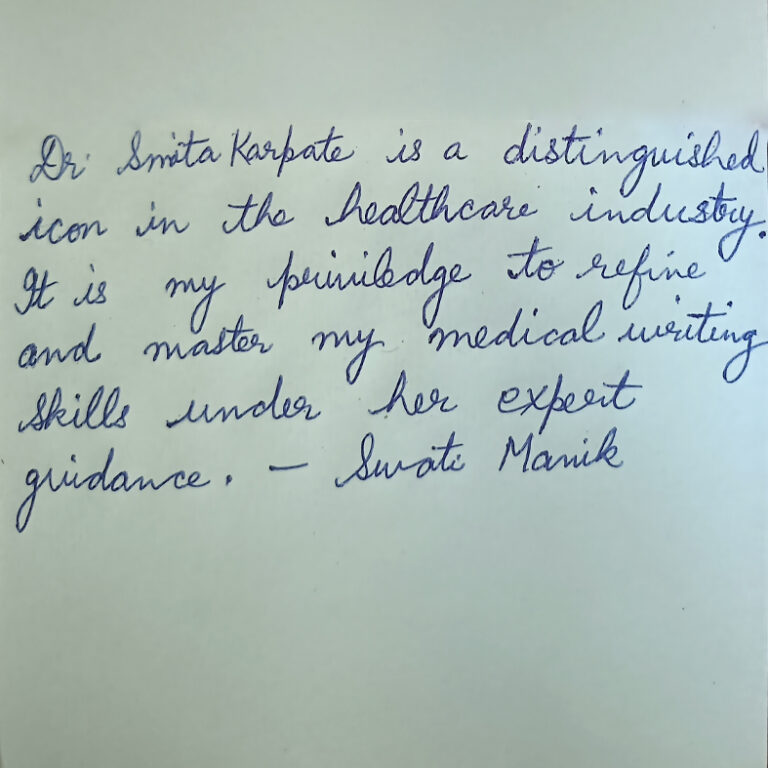 Dr. Smita Karpate is a distinguished
icon in the healthcare industry.
It is my priviledge to refine
and master my medical writing
skills under her expert
guidance. - Swati Manik